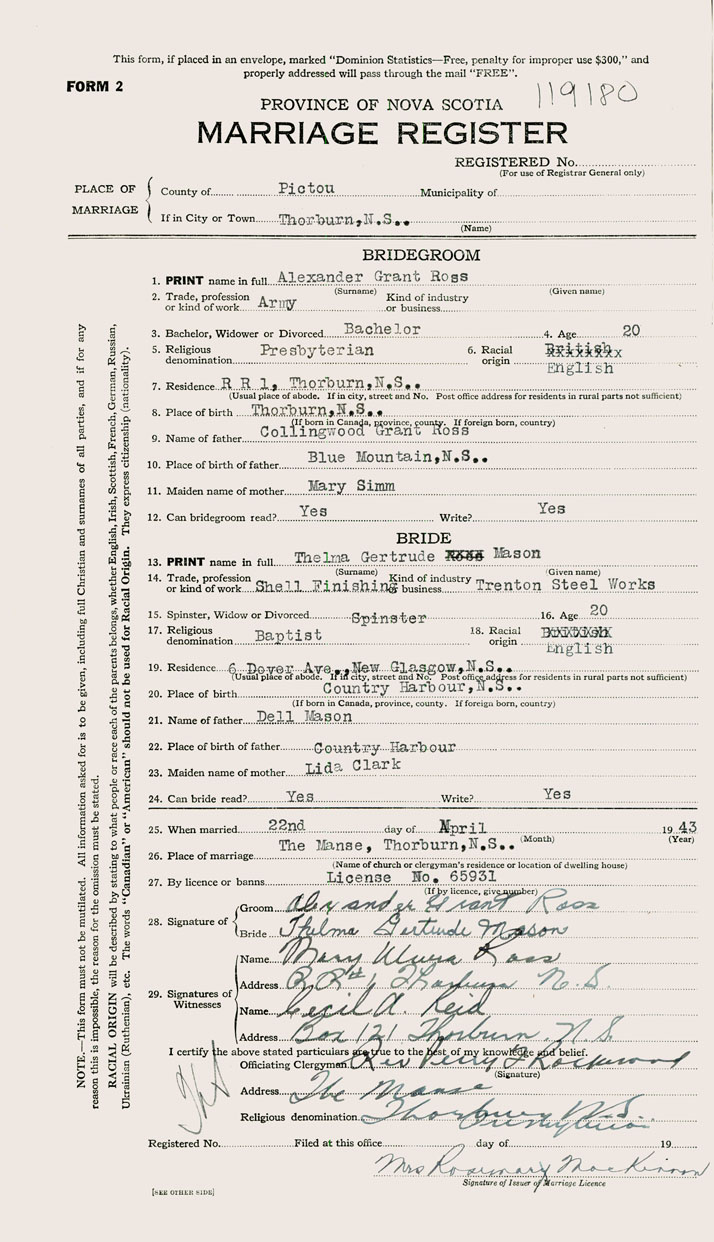 This form, if placed in an envelope, marked "Dominion Statistics—Free, penalty for improper use $300," and
properly addressed will pass through the mail "FREE".
FORM 2
119180
PROVINCE OF NOVA SCOTIA
MARRIAGE REGISTER
REGISTERED No.
(For use of Registrar General only)
PLACE OF MARRIAGE
County of Pictou Municipality of
If in City or Town Thorburn,N.S..
(Name)
BRIDEGROOM
1. PRINT name in full Alexander Grant Ross
(Surname) (Given name)
2. Trade, profession or kind of work Army Kind of industry or business
3. Bachelor, Widower or Divorced Bachelor 4. Age 20
5. Religious denomination Presbyterian 6. Racial origin British
English
7. Residence R R 1, Thorburn,N.S..
(Usual place of abode. If in city, street and No. Post office address for residents in rural parts not sufficient)
8. Place of birth Thorburn,N.S..
(If born in Canada, province, county. If foreign born, country)
9. Name of father Collingwood Grant Ross
10. Place of birth of father Blue Mountain,N.S..
11. Maiden name of mother Mary Simm
12. Can bridegroom read? Yes Write? Yes
BRIDE
13. PRINT name in full Thelma Gertrude Ross Mason
(Surname) (Given name)
14. Trade, profession or kind of work Shell Finishing Kind of industry or business Trenton Steel Works
15. Spinster, Widow or Divorced Spinster 16. Age 20
17. Religious denomination Baptist 18. Racial origin
English
19. Residence 6 Dover Ave.,New Glasgow,N.S..
(Usual place of abode. If in city, street and No. Post office address for residents in rural parts not sufficient)
20. Place of birth Country Harbour,N.S..
(If born in Canada, province, county. If foreign born, country)
21. Name of father Dell Mason
22. Place of birth of father Country Harbour
23. Maiden name of mother Lida Clark
24. Can bride read? Yes Write? Yes
25. When married 22nd day of April 19 43
(Month) (Year)
26. Place of marriage The Manse, Thorburn,N.S..
(Name of church or clergyman's residence or location of dwelling house)
27. By licence or banns License No. 65931
(If by licence, give number)
28. Signature of
Groom Alexander Grant Ross
Bride Thelma Gertrude Mason
29. Signatures of Witnesses
Name Mary Ross
Address R.R. 1 Thorburn N.S.
Name Cecil A. Reid
Address Box 121 Thorburn N.S.
I certify the above stated particulars are true to the best of my knowledge and belief.
Officiating Clergyman Rev Perry F Rockwood
(Signature)
Address The Manse
Thorburn N.S.
Religious denomination Presbyterian
Registered No. Filed at this office day of 19
Mrs Rosemary MacKinnon
Signature of Issuer of Marriage Licence
[SEE OTHER SIDE]
NOTE.—This form must not be mutilated. All information asked for is to be given, including full Christian and surnames of all parties, and if for any
reason this is impossible, the reason for the omission must be stated.
RACIAL ORIGIN will be described by stating to what people or race each of the parents belongs, whether English, Irish, Scottish, French, German, Russian,
Ukrainian (Ruthenian), etc. The words "Canadian" or "American" should not be used for Racial Origin. They express citizenship (nationality).